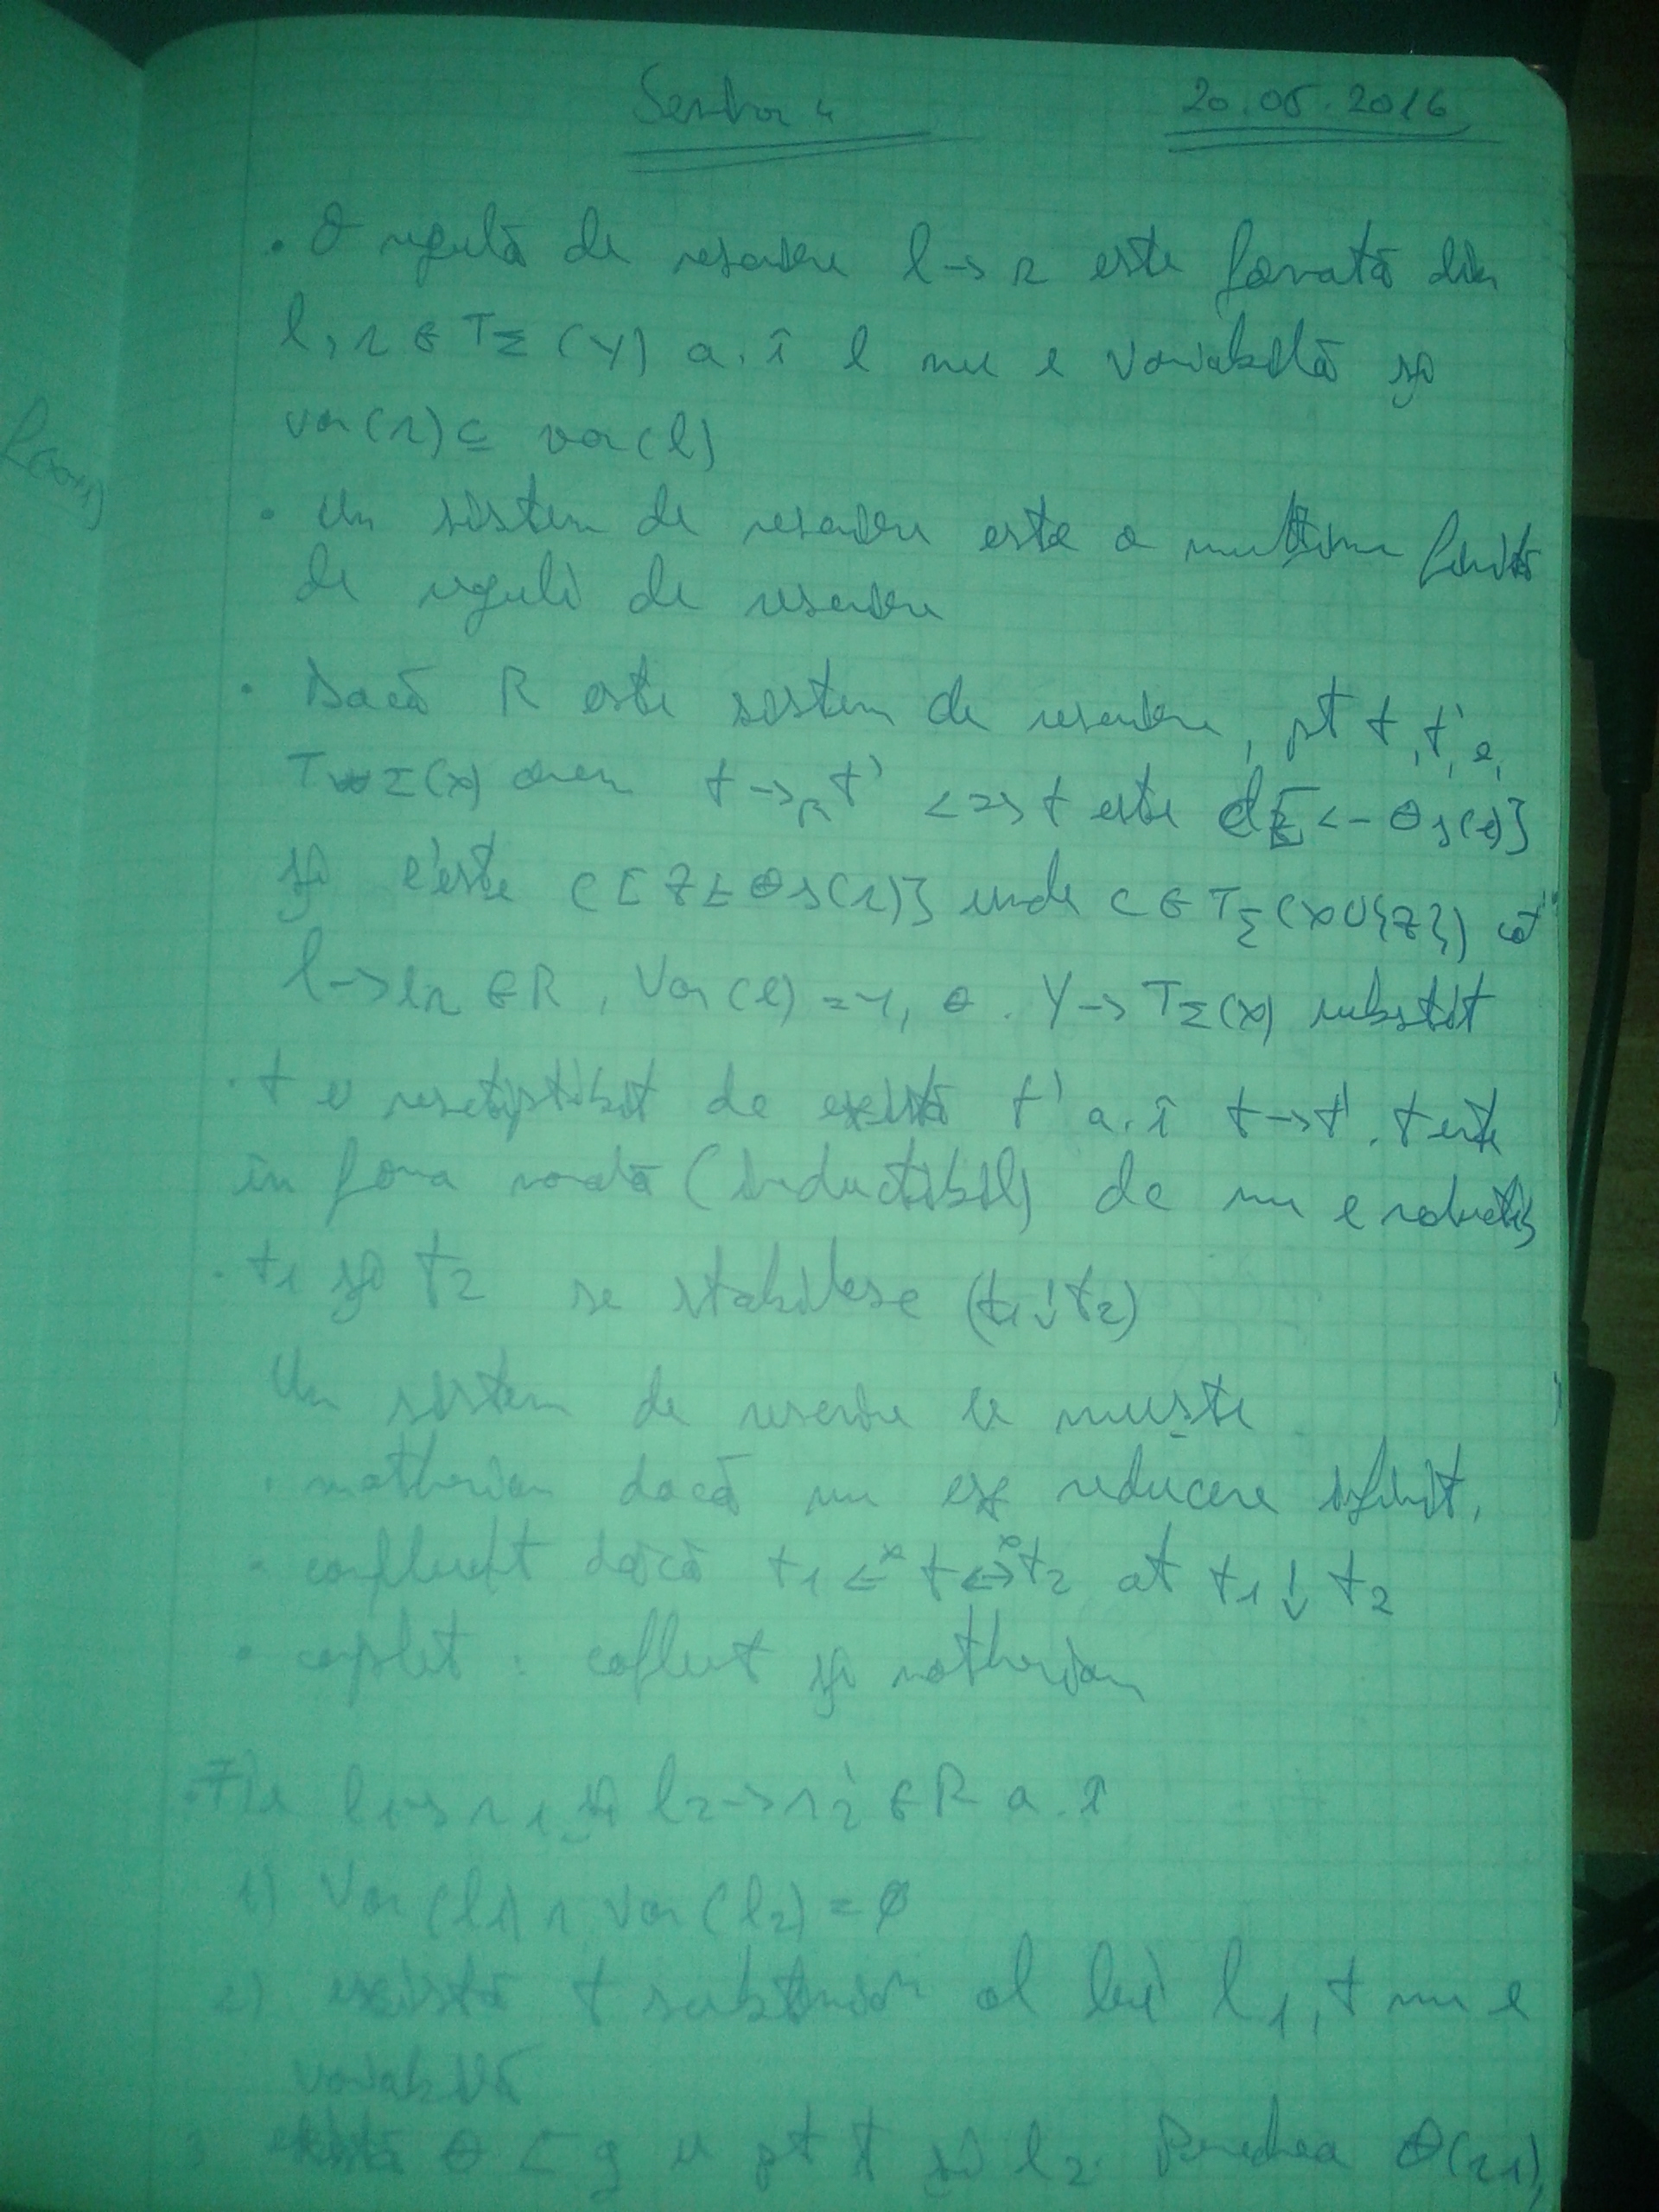 Seminar 4 20.05.2016
• O regulă de rescriere l → r este formată din
l, r ∈ TΣ(Y) a.î l nu e variabilă și
var(r) ⊆ var(l)
• Un sistem de rescriere este o mulțime finită
de reguli de rescriere
• Dacă R este sistem de rescriere, pt t, t' ∈
TΣ(X) avem t →R t' <=> t este c[z <- θs(l)]
și t' este c[z ← θs(r)] unde c ∈ TΣ(X∪{z})
l → r ∈ R, Var(l) = Y, θ : Y → TΣ(X) substit
• t e de există t' a.î t → t'. t este
în forma (inductibil) de nu e
• t1 și t2 se stabilesc (t1 ↓ t2)
Un sistem de rescriere se numește
• notherian dacă nu ex reducere infinit.
• confluent dacă t1 <-* t t2 at t1 ↓ t2
• complet : confluent și notherian
• Fie l1 → r1 și l2 → r2 ∈ R a.î
1) Var(l1) ∩ Var(l2) = ∅
2) există t subtermen al lui l1, t nu e
variabilă
3 există θ c g u pt t și l2. Perechea θ(r1),